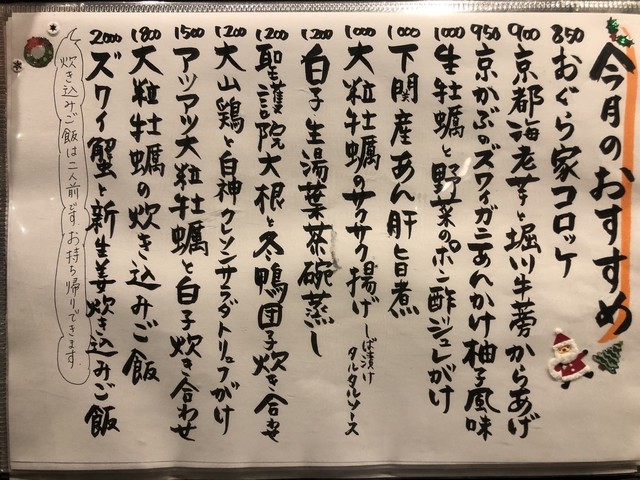 今月のおすすめ
850 おぐら家コロッケ
900 京都海老芋と堀川牛蒡からあげ
950 京かぶのズワイガニあんかけ柚子風味
1000 生牡蠣と野菜のポン酢ジュレがけ
1000 下関産あん肝旨煮
1000 大粒牡蠣のサクサク揚げ しば漬けタルタルソース
1200 白子生湯葉茶碗蒸し
1200 聖護院大根と冬鴨団子炊き合せ
1200 大山鶏と白神クレソンサラダトリュフがけ
1500 アツアツ大粒牡蠣と白子炊き合わせ
1800 大粒牡蠣の炊き込みご飯
2000 ズワイ蟹と新生姜炊き込みご飯
炊き込みご飯は二人前です。お持ち帰りできます。